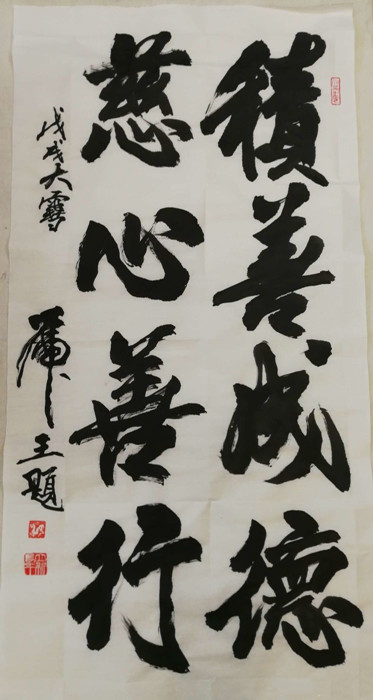 積善成德
慈心善行
戊戌大雪
王題